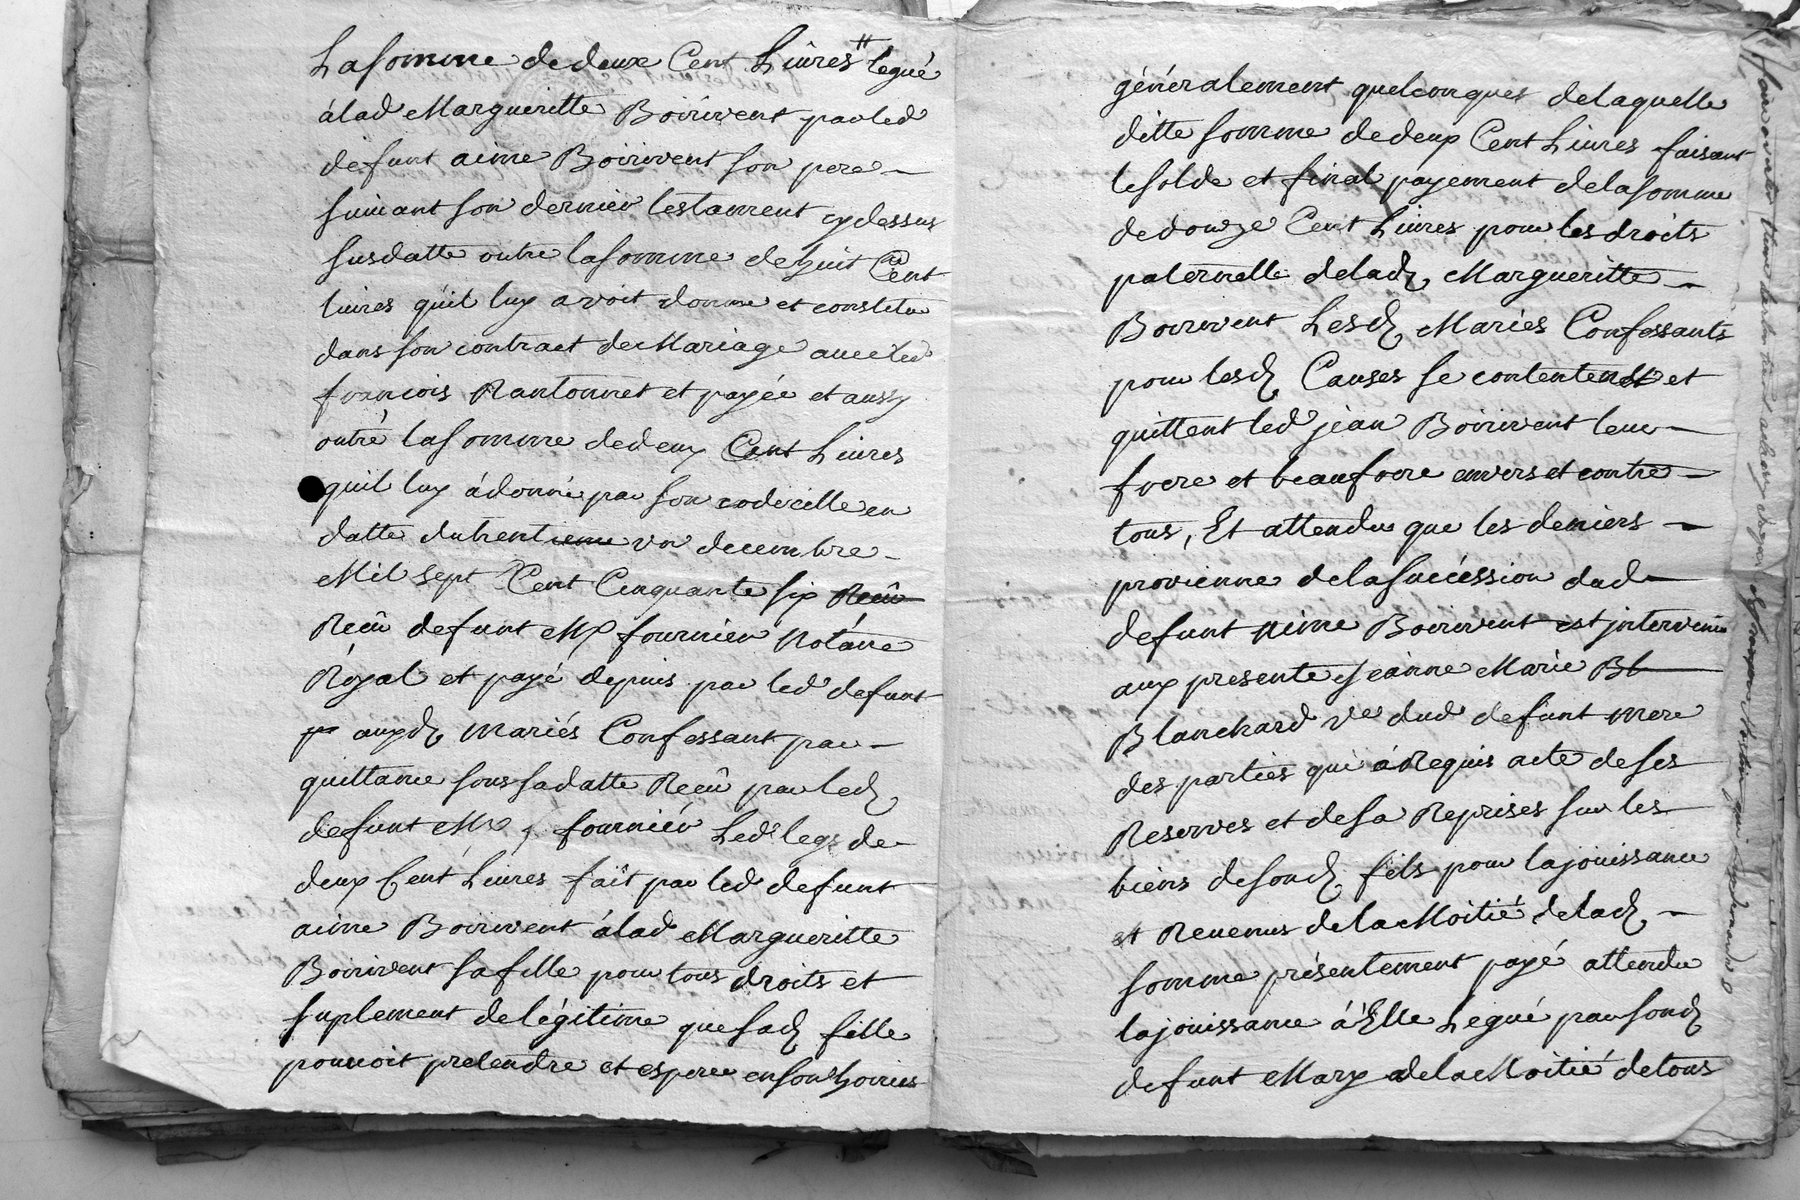 La somme de deux Cent Livres legué
à lad Margueritte Boirivent par led
defunt aime Boirivent son pere
suivant son dernier testament cy dessus
susdatte outre la somme de huit Cent
livres qu'il luy avoit donne et constitu
dans son contract de Mariage avec led
francois Rantonnet et payée et aussy
outre la somme de deux Cent Livres
quil luy à donné par son codicille en
datte du trentieme un decembre
Mil sept Cent Cinquante six Recû
Recû defunt Me fournier Notaire
Royal et payé depuis par led defunt
auxd. Mariés Confessant par
quittance sous sa datte Recû par led.
defunt Me fournier Led legs de
deux Cent Livres fait par led defunt
aime Boirivent à lad Margueritte
Boirivent sa fille pour tous droits et
suplement de légitime que sad. fille
pouvoit pretendre et esperer en son hoiries
généralement quelconques de laquelle
ditte somme de deux Cent Livres faisant
le solde et final payement de la somme
de douze Cent Livres pour les droits
paternelle de lad. Margueritte
Boirivent Lesd. Mariés Confessants
pour lesd. Causes se contentent et
quittent led jean Boirivent leur
frere et beaufrere envers et contre
tous, Et attendu que les deniers
provienne de la succéssion dud
defunt Aime Boirivent est jntervenue
aux presente Jeanne Marie Bl
Blanchard ve dud defunt mere
des parties qui à Requis acte de ses
Reserves et de sa Reprises sur les
biens de sond. fils pour la jouissance
et Revenus de la Moitié de lad.
somme présentement payé attendu
la jouissance à Elle Legué par sond.
defunt Mary de la Moitié de tous